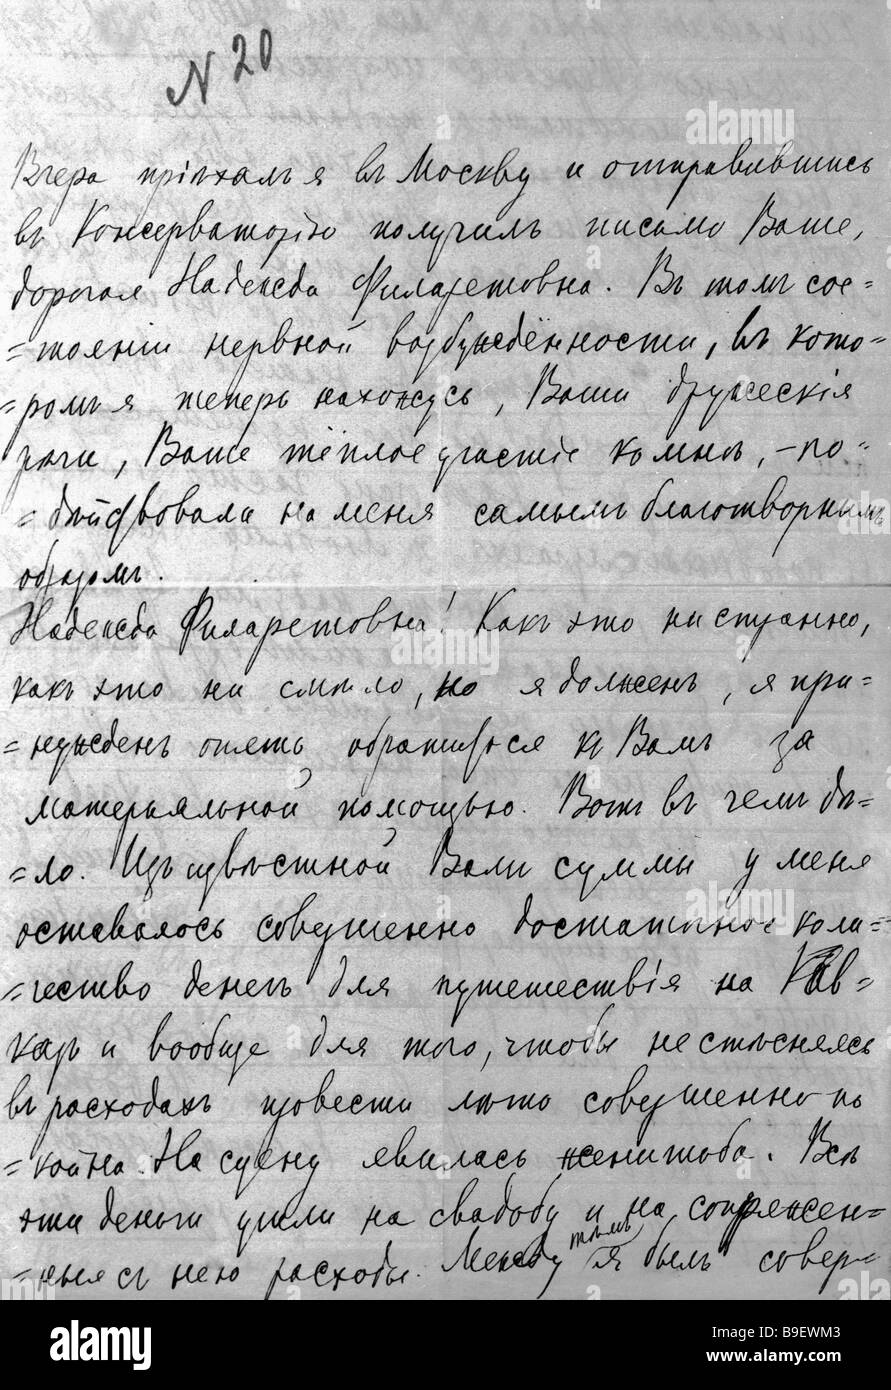 N 20
Вчера пріѣхалъ я въ Москву и отправившись
въ Консерваторію получилъ письмо Ваше,
дорогая Надежда Филаретовна. Въ томъ сос=
=тояніи нервной возбуждённости, въ кото=
=ромъ я теперь нахожусь, Ваши дружескія
рѣчи, Ваше тёплое участіе ко мнѣ, – по=
=дѣйствовали на меня самымъ благотворнымъ
образомъ.
Надежда Филаретовна! Какъ это ни странно,
какъ это ни смѣло, но я долженъ, я при=
=нужденъ опять обратиться къ Вамъ за
матерьяльной помощью. Вотъ въ чемъ дѣ=
=ло. Изъ извѣстной Вамъ суммы у меня
оставалось совершенно достаточное коли=
=чество денегъ для путешествія на Кав=
казъ и вообще для того, чтобы не стѣсняясь
въ расходахъ провести лѣто совершенно по
=койно. На сцену явилась женитьба. Всѣ
эти деньги ушли на свадьбу и на сопряжен=
=ные съ нею расходы. Между тѣмъ я былъ совер=
alamy
alamy
alamy
alamy
alamy
Image ID: B9EWM3
www.alamy.com